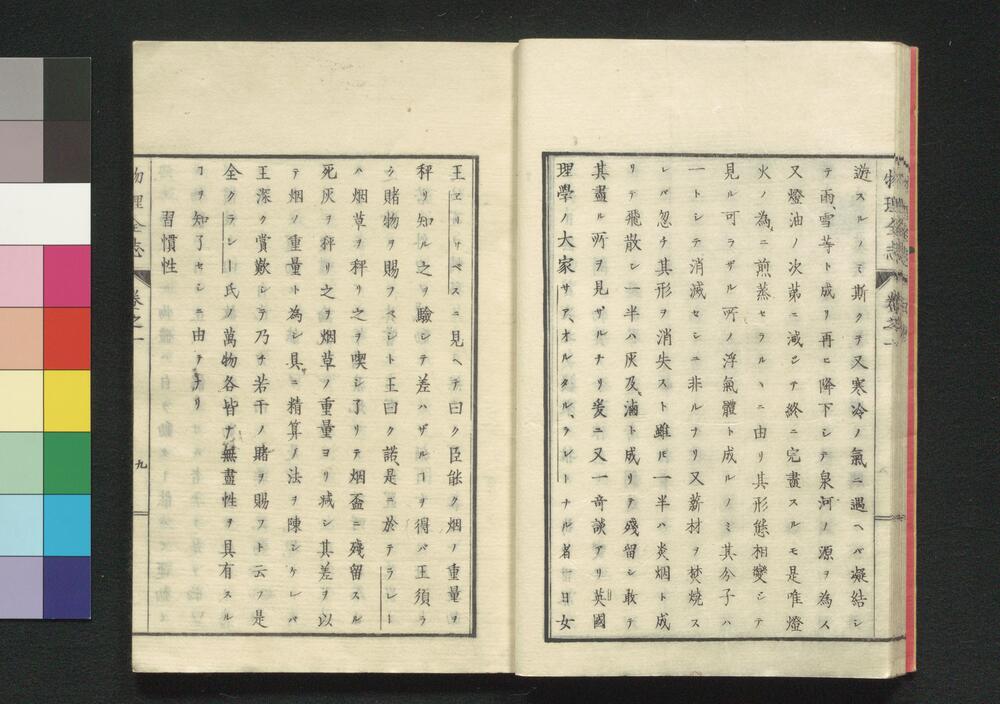 遊スルノミ斯クヲ又寒冷ノ氣ニ遇ヘバ凝結シ
テ雨、雪等ト成リ再ヒ降下シテ泉河ノ源ヲ為ス
又燈油ノ次第ニ減シテ終ニ完盡スルモ是唯燈
火ノ為ニ煎蒸セラルヽニ由リ其形態相變シテ
見ル可ラザル所ノ浮氣體ト成ルノミ其分子ハ
一トシテ消滅セシニ非ルナリ又薪材ヲ焚燒ス
レバ忽チ其形ヲ消失スト雖𪜈一半ハ炎烟ト成
リテ飛散シ一半ハ灰及滷ト成リテ殘留シ敢テ
其盡ル所ヲ見ザルナリ爰ニ又一奇談アリ英國
理學ノ大家サア、オルタル、ラレーナル者一日女
王ヱリサベスニ見ヘテ曰ク臣能ク烟ノ重量ヲ
秤リ知ル之ヲ驗シテ差ハザルヿヲ得バ王須ラ
ク賭物ヲ賜フベシト王曰ク諾是ニ於テラレー
ハ烟草ヲ秤リ之ヲ喫シ了リテ烟盃ニ殘留スル
死灰ヲ秤リ之ヲ烟草ノ重量ヨリ減シ其差ヲ以
テ烟ノ重量ト為シ具ニ精算ノ法ヲ陳シケレバ
王深ク賞歎シテ乃チ若干ノ賭ヲ賜フト云フ是
全クラレー氏ノ萬物各皆ナ無盡性ヲ具有スル
ヿヲ知了セシニ由ヲナリ
習慣性
物理全志
卷之一
九